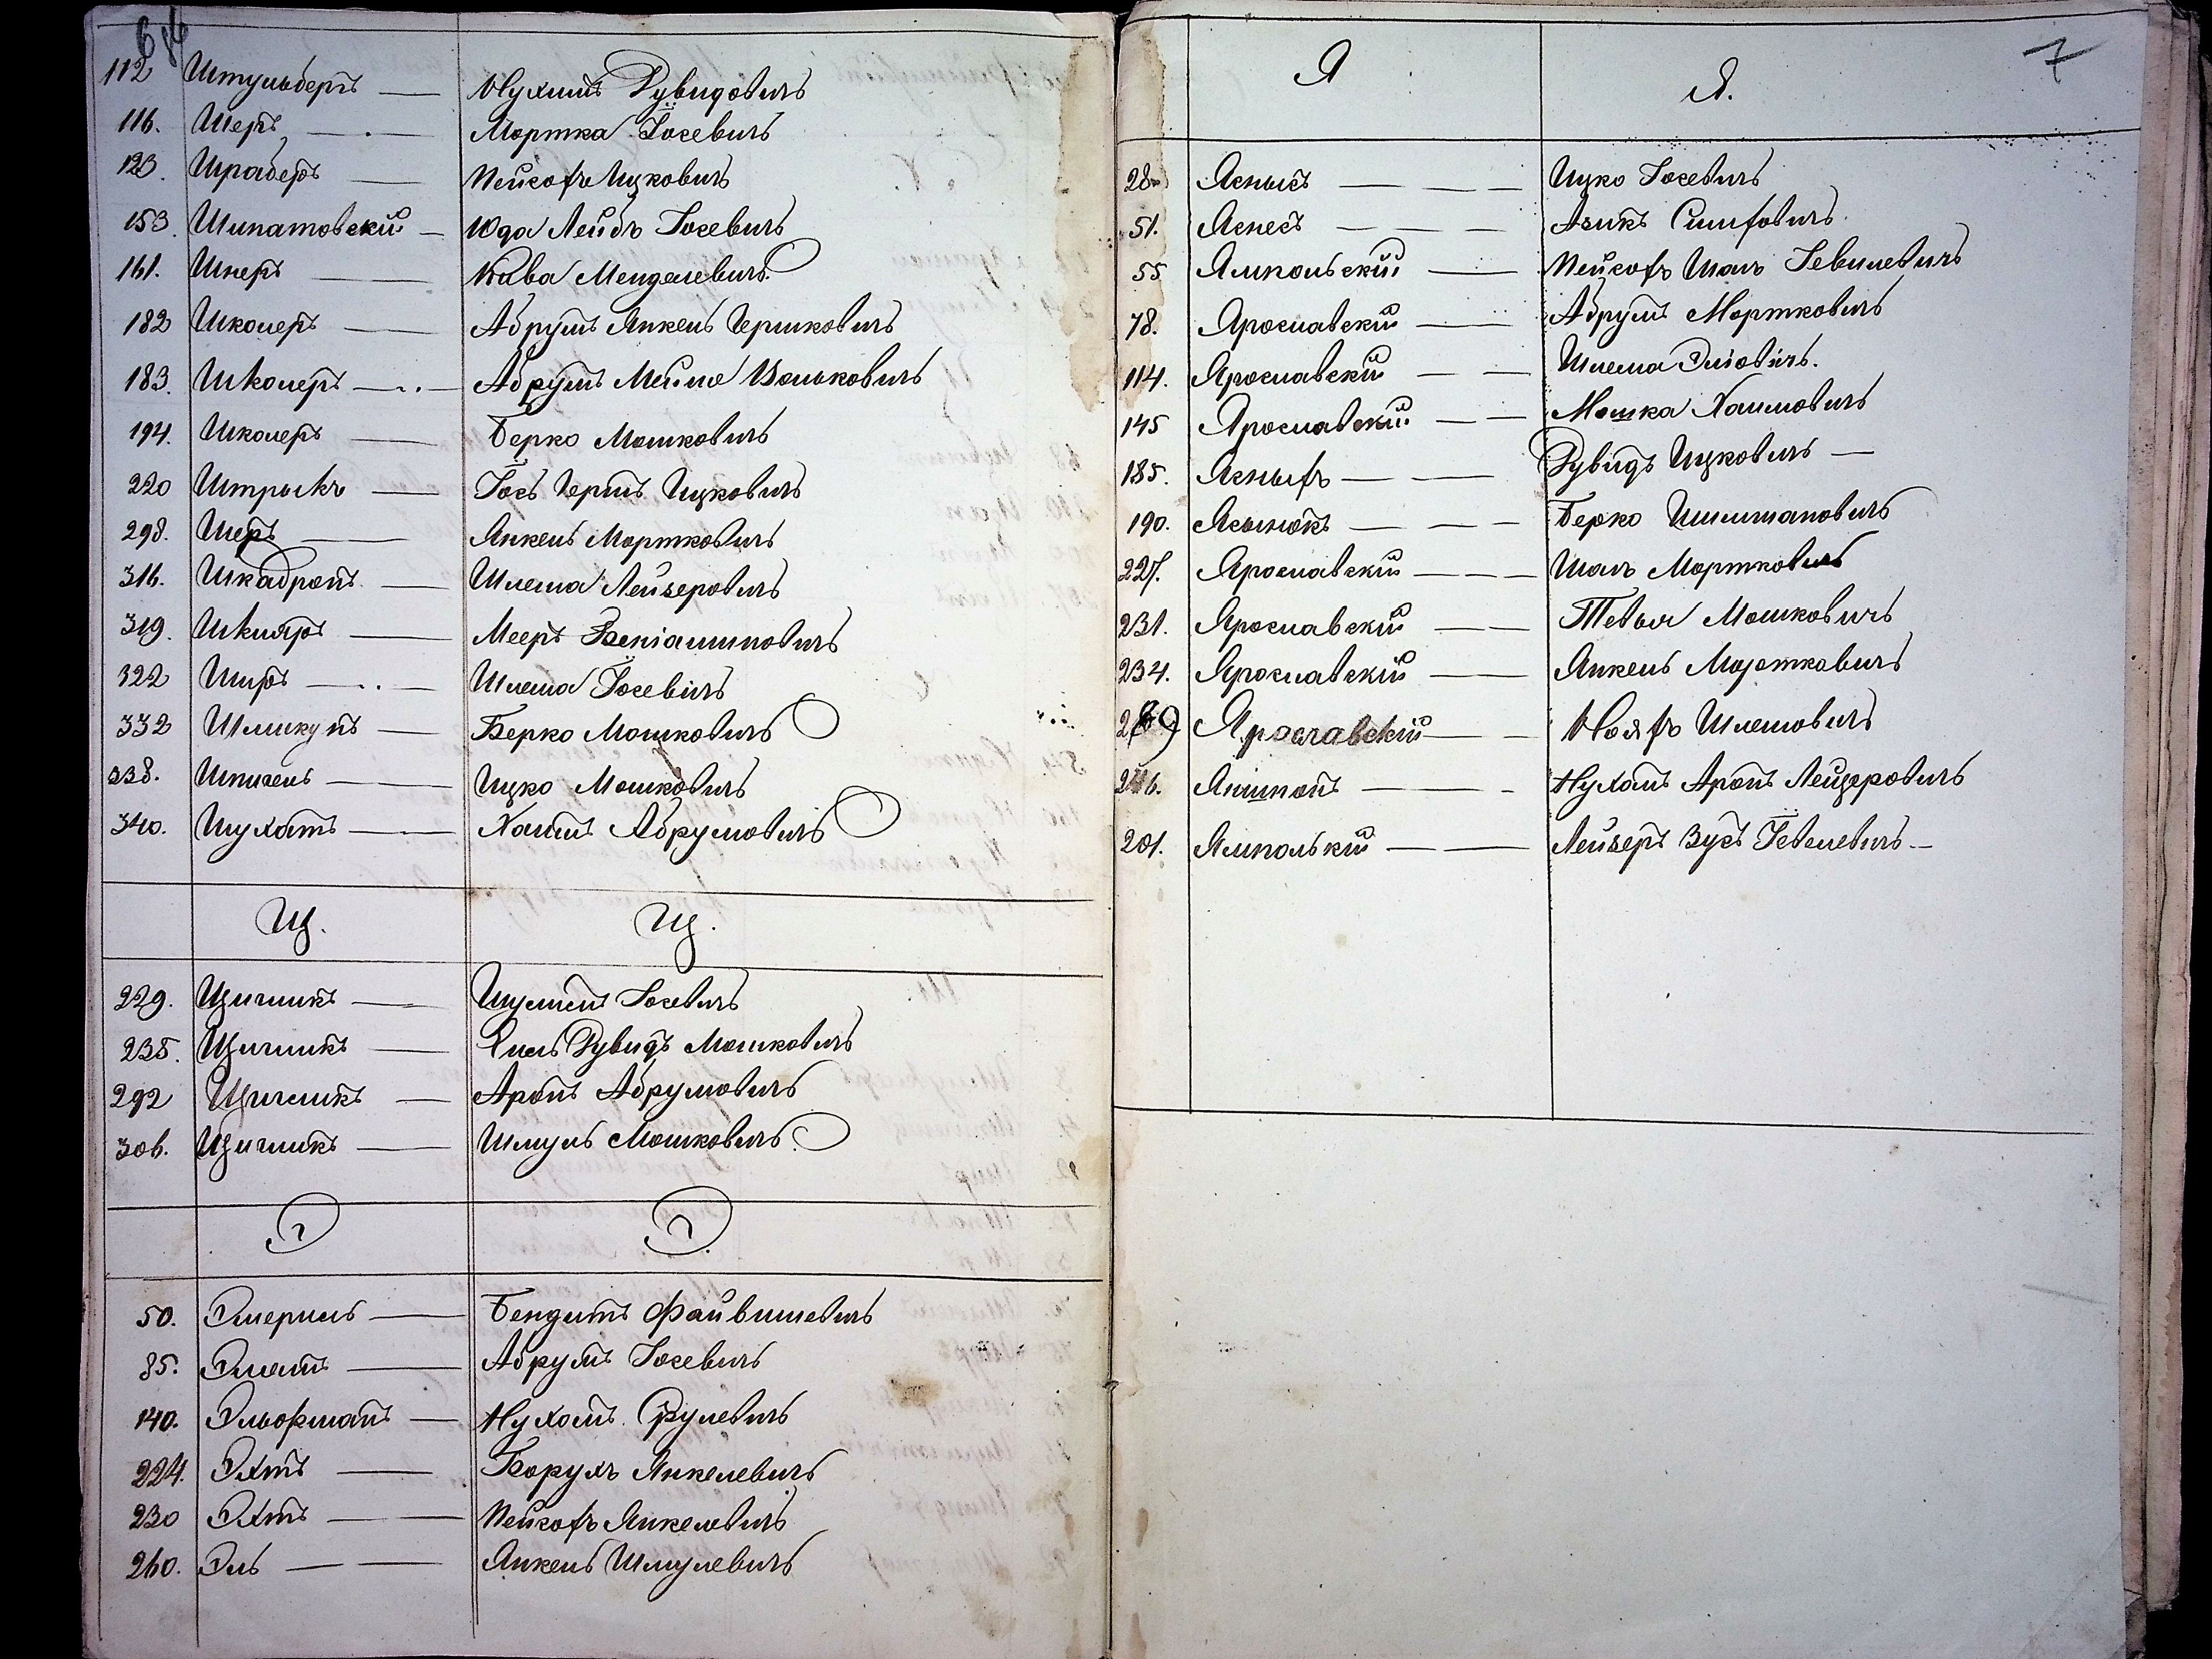 112 Штульбергъ — Нухимъ Дувидовичъ
116. Шеръ — Мортка Іосевичъ
123. Шраберъ — Пейсахъ Ицковичъ
153. Шипатовскій — Юда Лейбъ Іосевичъ
161. Шнеръ — Кава Менделевичъ
182 Школеръ — Абрумъ Янкель Гершковичъ
183. Школеръ — Абрумъ Мейше Вольковичъ
194. Школеръ — Берко Мошковичъ
220 Штрыкъ — Іосъ Гершъ Ицковичъ
298. Шеръ — Янкель Мортковичъ
316. Шкадронъ — Шлема Лейзеровичъ
319. Шкляръ — Мееръ Беніаминовичъ
322 Ширъ — Шлема Іосевичъ
332 Шмикунъ — Берко Мошковичъ
338. Шпигель — Ицко Мошковичъ
340. Шухатъ — Хаимъ Абрумовичъ
Щ. Щ.
229. Щигликъ — Шулимъ Іосевичъ
235. Щигликъ — Хиль Дувидъ Мошковичъ
292 Щигликъ — Аронъ Абрумовичъ
306. Щигликъ — Шмуль Мошковичъ
Э Э.
50. Эмериль — Бендитъ Файвишевичъ
85. Эламъ — Абрумъ Іосевичъ
140. Эльфманъ — Нухамъ Срулевичъ
224. Эхтъ — Борухъ Янкелевичъ
230 Эхтъ — Пейсахъ Янкелевичъ
260. Эль — Янкель Шмулевичъ
7
Я Я.
28 Яснысъ — Ицко Іосевичъ
51. Яснесъ — Азикъ Симховичъ
55 Ямпольскій — Пейсахъ Шая Гевилевичъ
78. Ярославскій — Абрумъ Мортковичъ
114. Ярославскій — Шлема Эліовичъ.
145 Ярославскій — Мошка Хаимовичъ
185. Ясныхъ — Дувидъ Ицковичъ —
190. Ясынюкъ — Берко Шлимановичъ
227. Ярославскій — Шая Мортковичъ
231. Ярославскій — Тевья Мошковичъ
234. Ярославскій — Янкель Мортковичъ
269 Ярославскій — Нояхъ Шлемовичъ
276. Янишпонъ — Нухамъ Аронъ Лейзеровичъ
281. Ямпольскій — Лейзеръ Зусъ Гевелевичъ —